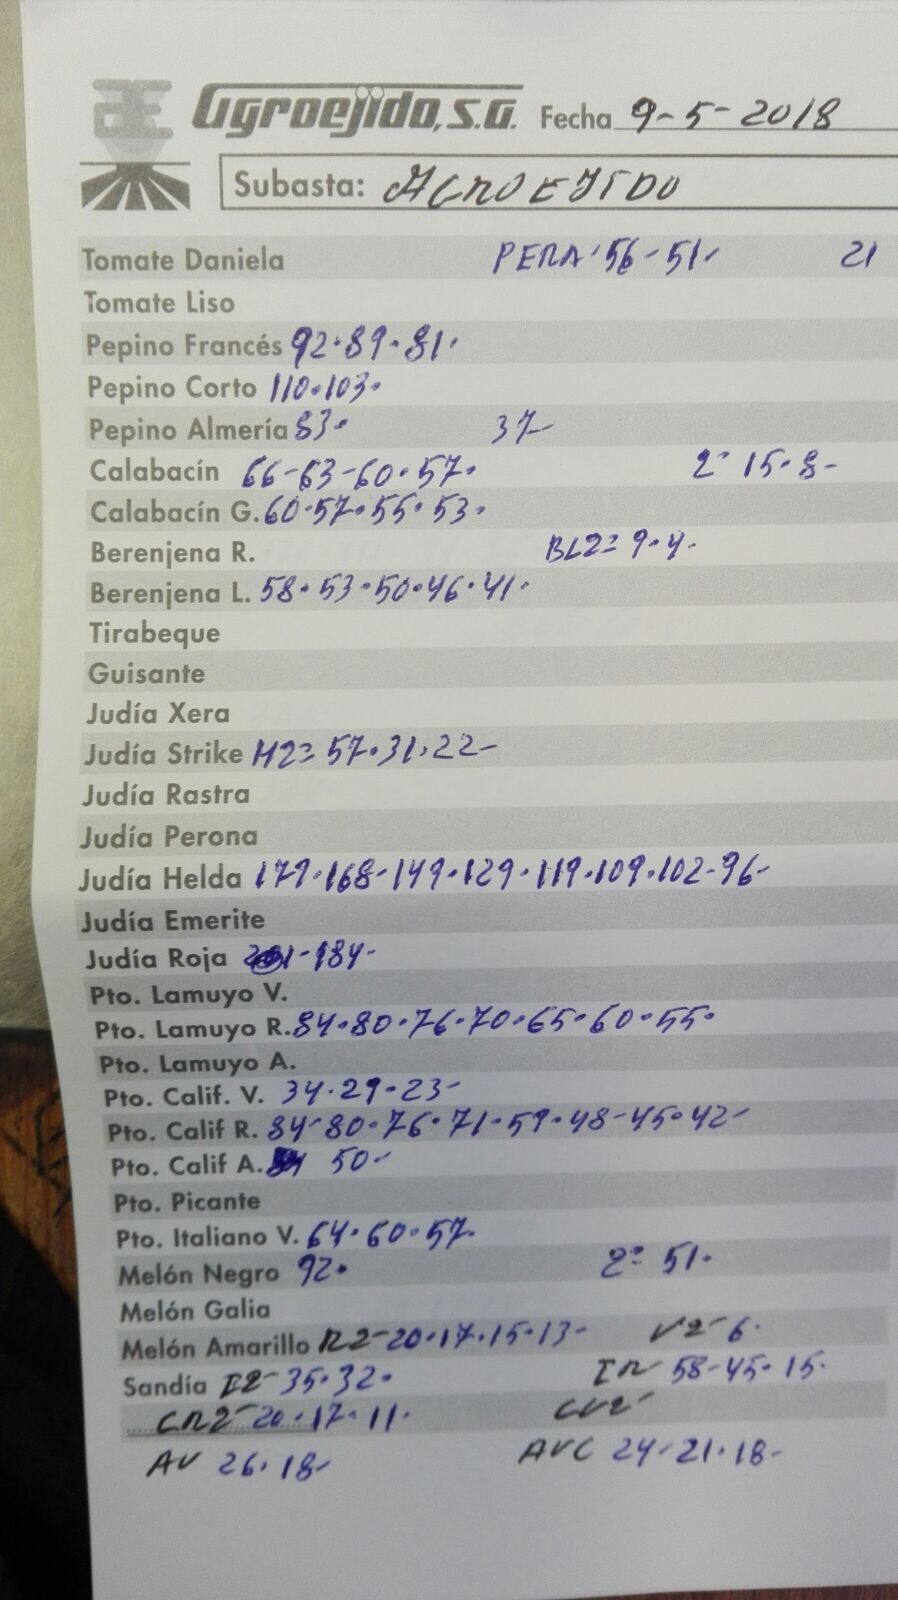 Agroejido, S.A. Fecha 9-5-2018
Subasta: AGROEJIDO
Tomate Daniela PERA 56-51- 21
Tomate Liso
Pepino Francés 92·89·81·
Pepino Corto 110·103·
Pepino Almería 83· 37-
Calabacín 66-63-60·57· 2ª 15·8-
Calabacín G. 60·57·55·53·
Berenjena R. BL2= 9·4·
Berenjena L. 58·53·50·46·41·
Tirabeque
Guisante
Judía Xera
Judía Strike H2= 57·31·22-
Judía Rastra
Judía Perona
Judía Helda 179·168-149·129·119·109·102-96-
Judía Emerite
Judía Roja 201-184-
Pto. Lamuyo V.
Pto. Lamuyo R. 84·80·76·70·65·60·55·
Pto. Lamuyo A.
Pto. Calif. V. 34·29-23-
Pto. Calif R. 84-80·76·71·59·48-45·42-
Pto. Calif A. 50-
Pto. Picante
Pto. Italiano V. 64·60·57·
Melón Negro 92· 2ª 51·
Melón Galia
Melón Amarillo R2-20·17·15·13- V2-6·
Sandía I2-35·32· IR-58-45·15·
CR2-20·17·11· CV2-
AV 26·18- AVC 24-21·18-